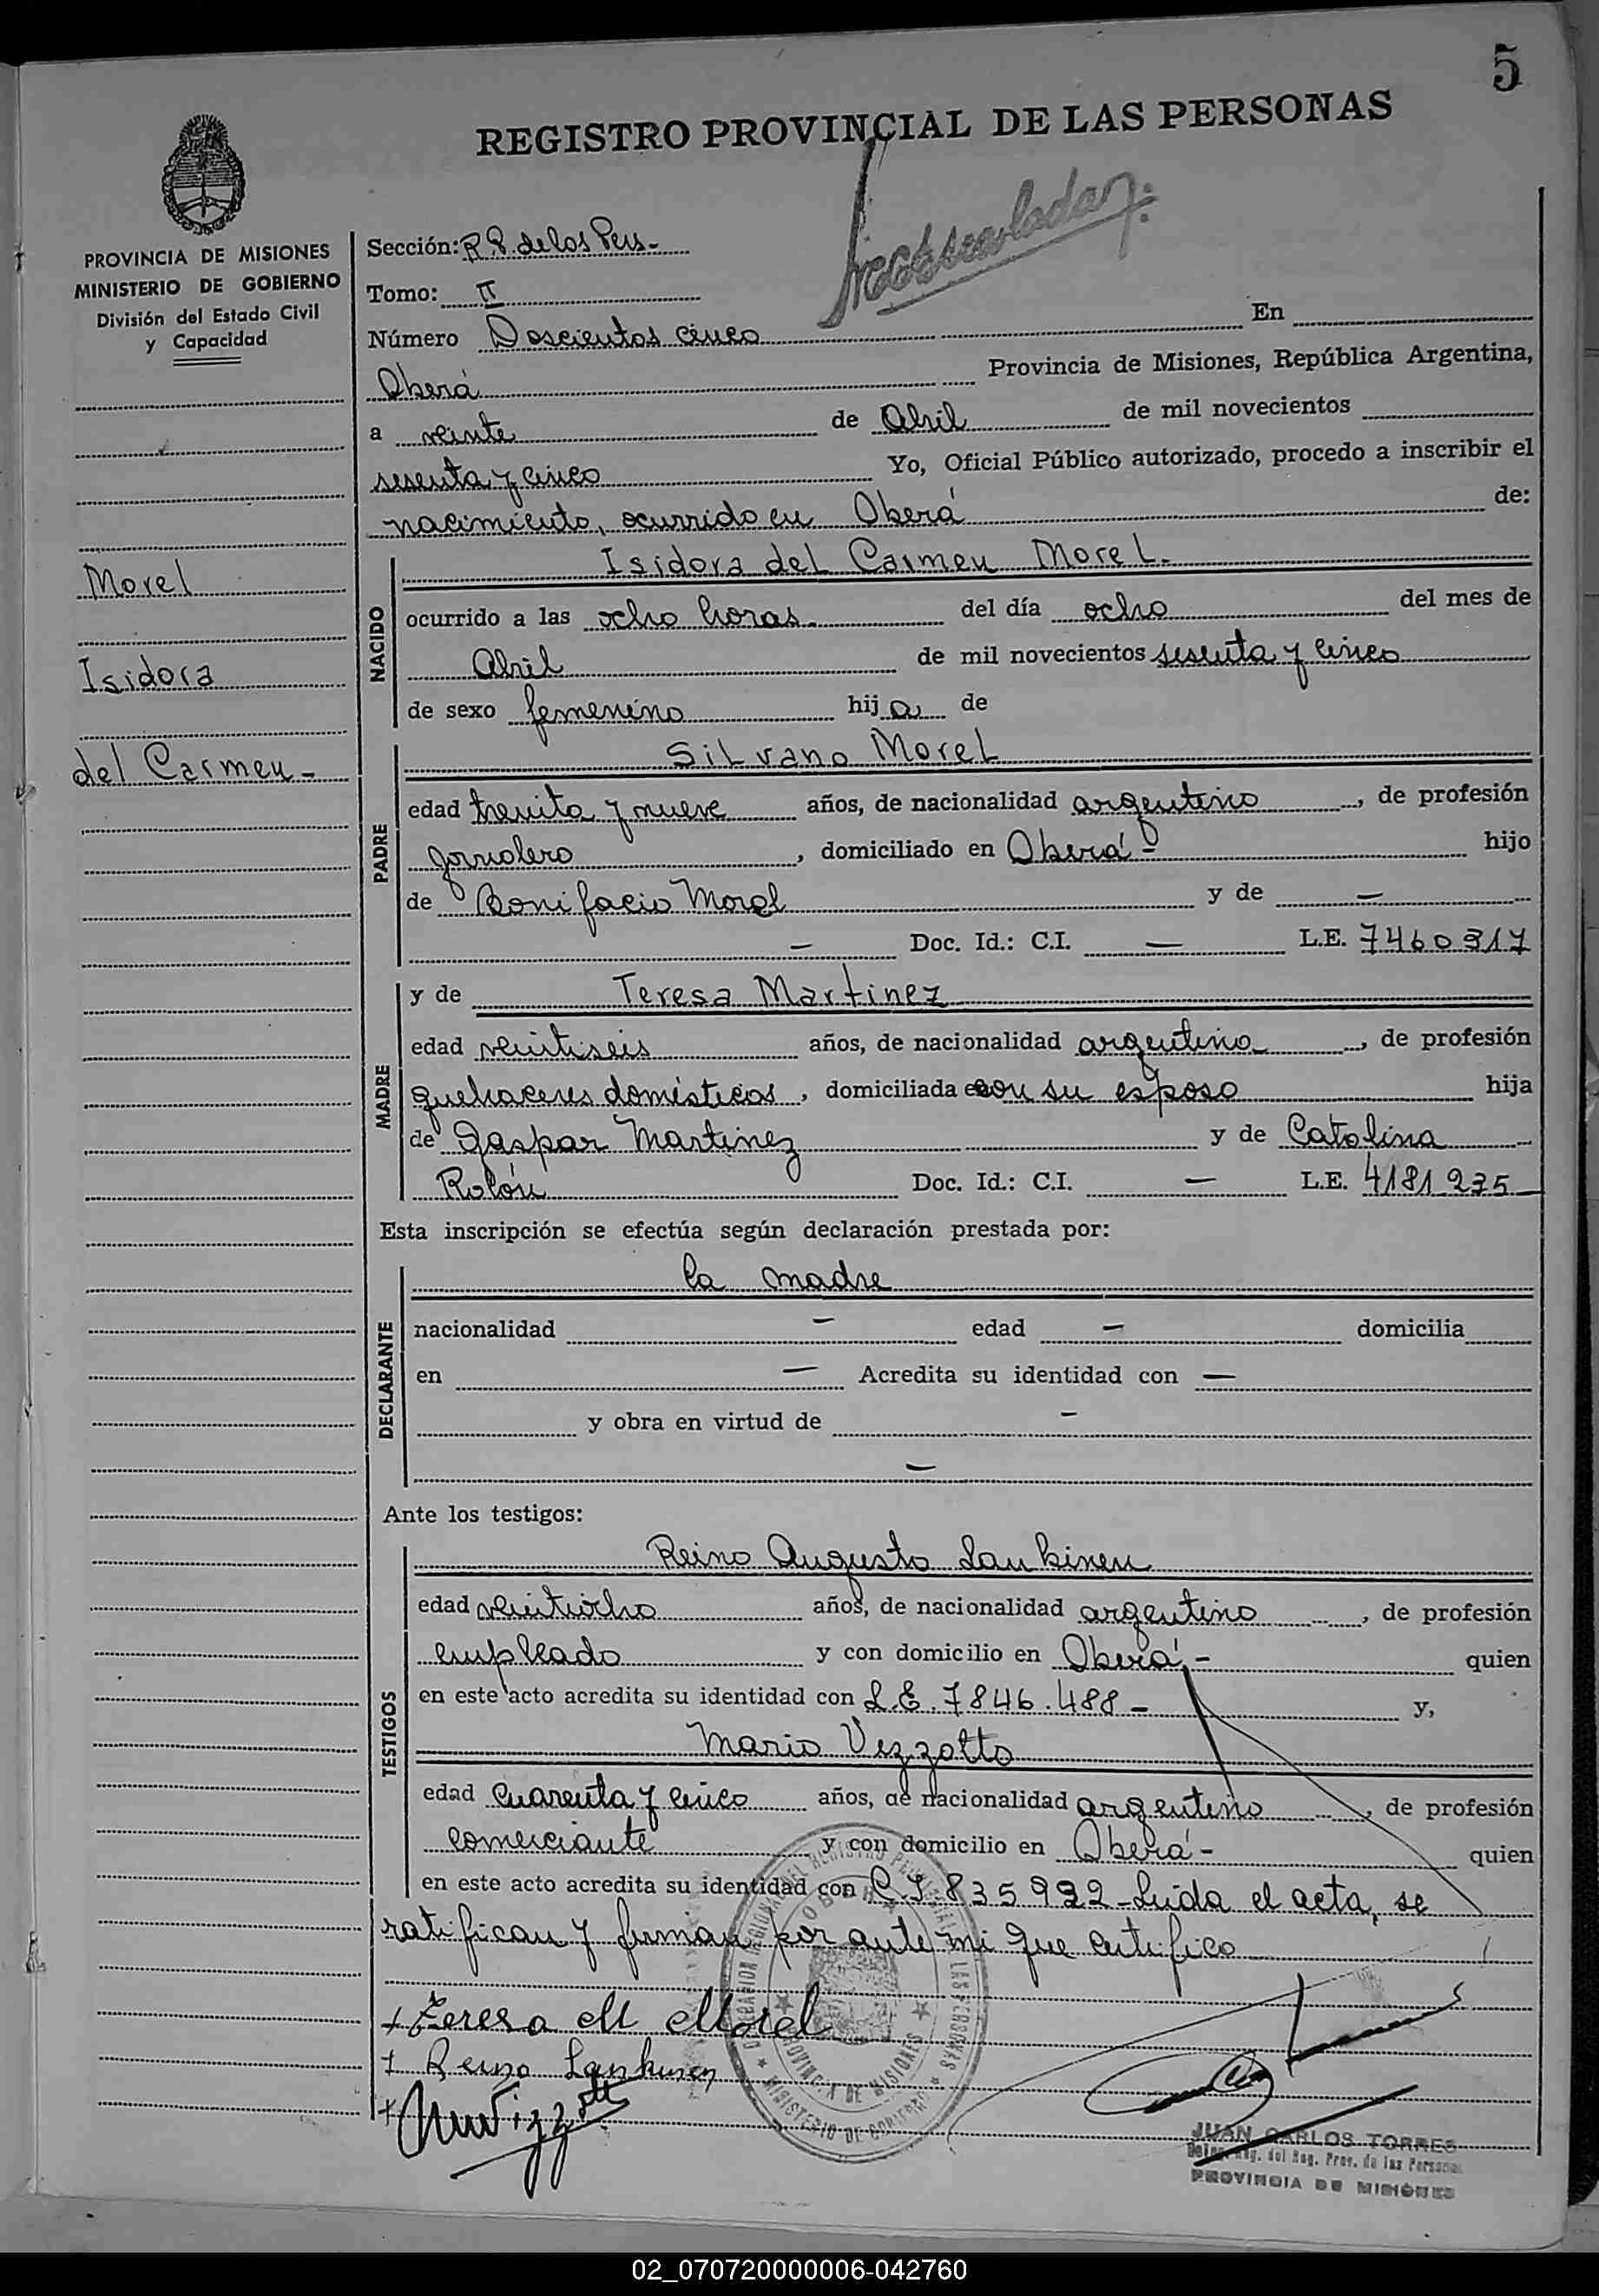 5
REGISTRO PROVINCIAL DE LAS PERSONAS
PROVINCIA DE MISIONES
MINISTERIO DE GOBIERNO
División del Estado Civil
y Capacidad
Morel
Isidora
del Carmen -
Sección: R.P. de las Pers-
Tomo: II
Número Doscientos cinco En
Oberá Provincia de Misiones, República Argentina,
a veinte de Abril de mil novecientos
sesenta y cinco Yo, Oficial Público autorizado, procedo a inscribir el
nacimiento, ocurrido en Oberá de:
NACIDO
Isidora del Carmen Morel.
ocurrido a las ocho horas. del día ocho del mes de
Abril de mil novecientos sesenta y cinco
de sexo femenino hija de
PADRE
Silvano Morel
edad treinta y nueve años, de nacionalidad argentino, de profesión
jornalero, domiciliado en Oberá - hijo
de Bonifacio Morel y de —
— Doc. Id.: C.I. — L.E. 7460317
MADRE
y de Teresa Martinez
edad veintiseis años, de nacionalidad argentina, de profesión
quehaceres domésticos, domiciliada con su esposo hija
de Gaspar Martinez y de Catolina
Rolón Doc. Id.: C.I. — L.E. 4181275
Esta inscripción se efectúa según declaración prestada por:
DECLARANTE
la madre
nacionalidad — edad — domicilia
en — Acredita su identidad con —
y obra en virtud de -
—
Ante los testigos:
TESTIGOS
Reino Augusto Laukinen
edad veintiocho años, de nacionalidad argentino, de profesión
empleado y con domicilio en Oberá, - quien
en este acto acredita su identidad con L.E. 7846.488 - y,
Mario Vezzotto
edad cuarenta y cinco años, de nacionalidad argentino, de profesión
comerciante y con domicilio en Oberá - quien
en este acto acredita su identidad con C.I. 835922 - Leida el acta, se
ratifican y firman por ante mi que certifico
+ Teresa M Morel
+ Reino Lankinen
DELEGACION REGIONAL DEL REGISTRO PROVINCIAL DE LAS PERSONAS
OBERA
PROVINCIA DE MISIONES
MINISTERIO DE GOBIERNO
JUAN CARLOS TORRES
del Reg. Prov. de las Personas
PROVINCIA DE MISIONES
02_070720000006-042760